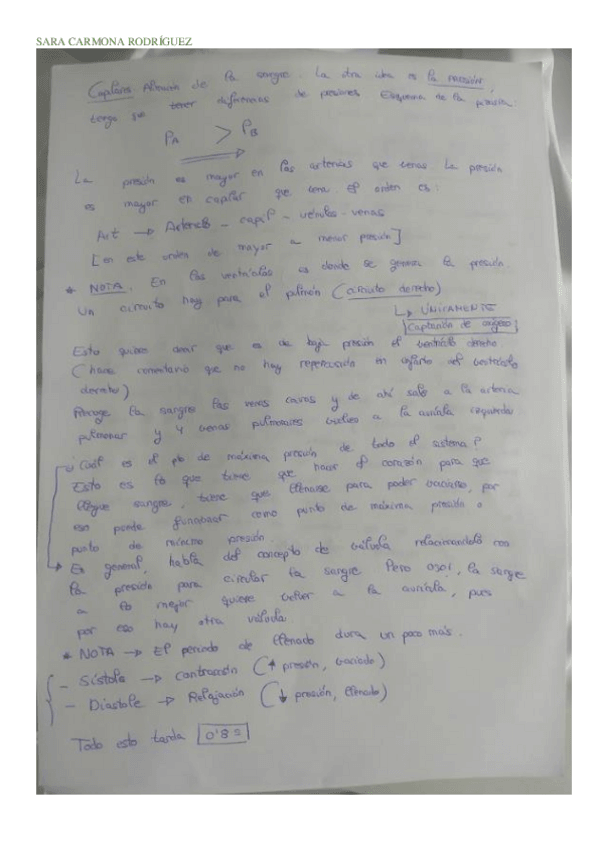 SARA CARMONA RODRÍGUEZ
Capilares. de la sangre. La otra idea es la presión,
tengo que tener diferencias de presiones. Esquema de la presión:
PA > PB
La presión es mayor en las arterias que venas. La presión
es mayor en capilar que vena. El orden es:
Art → Arteriola - capil - vénulas - venas
[en este orden de mayor a menor presión]
* NOTA. En los ventrículos es donde se genera la presión.
Un circuito hay para el pulmón (circuito derecho)
↳ ÚNICAMENTE
captación de oxígeno
Esto quiere decir que es de baja presión el ventrículo derecho
(hace comentario que no hay repercusión en infarto del ventrículo
derecho)
Recoge la sangre las venas cavas y de ahí sale a la arteria
pulmonar y 4 venas pulmonares vuelven a la aurícula izquierda
¿Cuál es el pto de máxima presión de todo el sistema?
Esto es lo que tiene que hacer el corazón para que
llegue sangre, tiene que llenarse para poder vaciarse, por
eso puede funcionar como punto de máxima presión o
punto de mínima presión.
En general, habla del concepto de válvula relacionándolo con
la presión para circular la sangre. Pero ojo!, la sangre
a lo mejor quiere volver a la aurícula, pues
por eso hay otra válvula.
* NOTA → El periodo de llenado dura un poco más.
- Sístole → contracción (↑ presión, vaciado)
- Diástole → Relajación (↓ presión, llenado)
Todo esto tarda 0'8 s